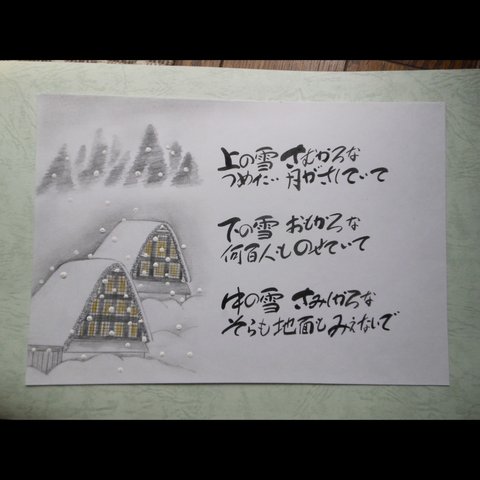 上の雪 さむかろな
つめたい月がさしていて
下の雪 おもかろな
何百人ものせていて
中の雪 さみしかろな
そらも地面もみえないで